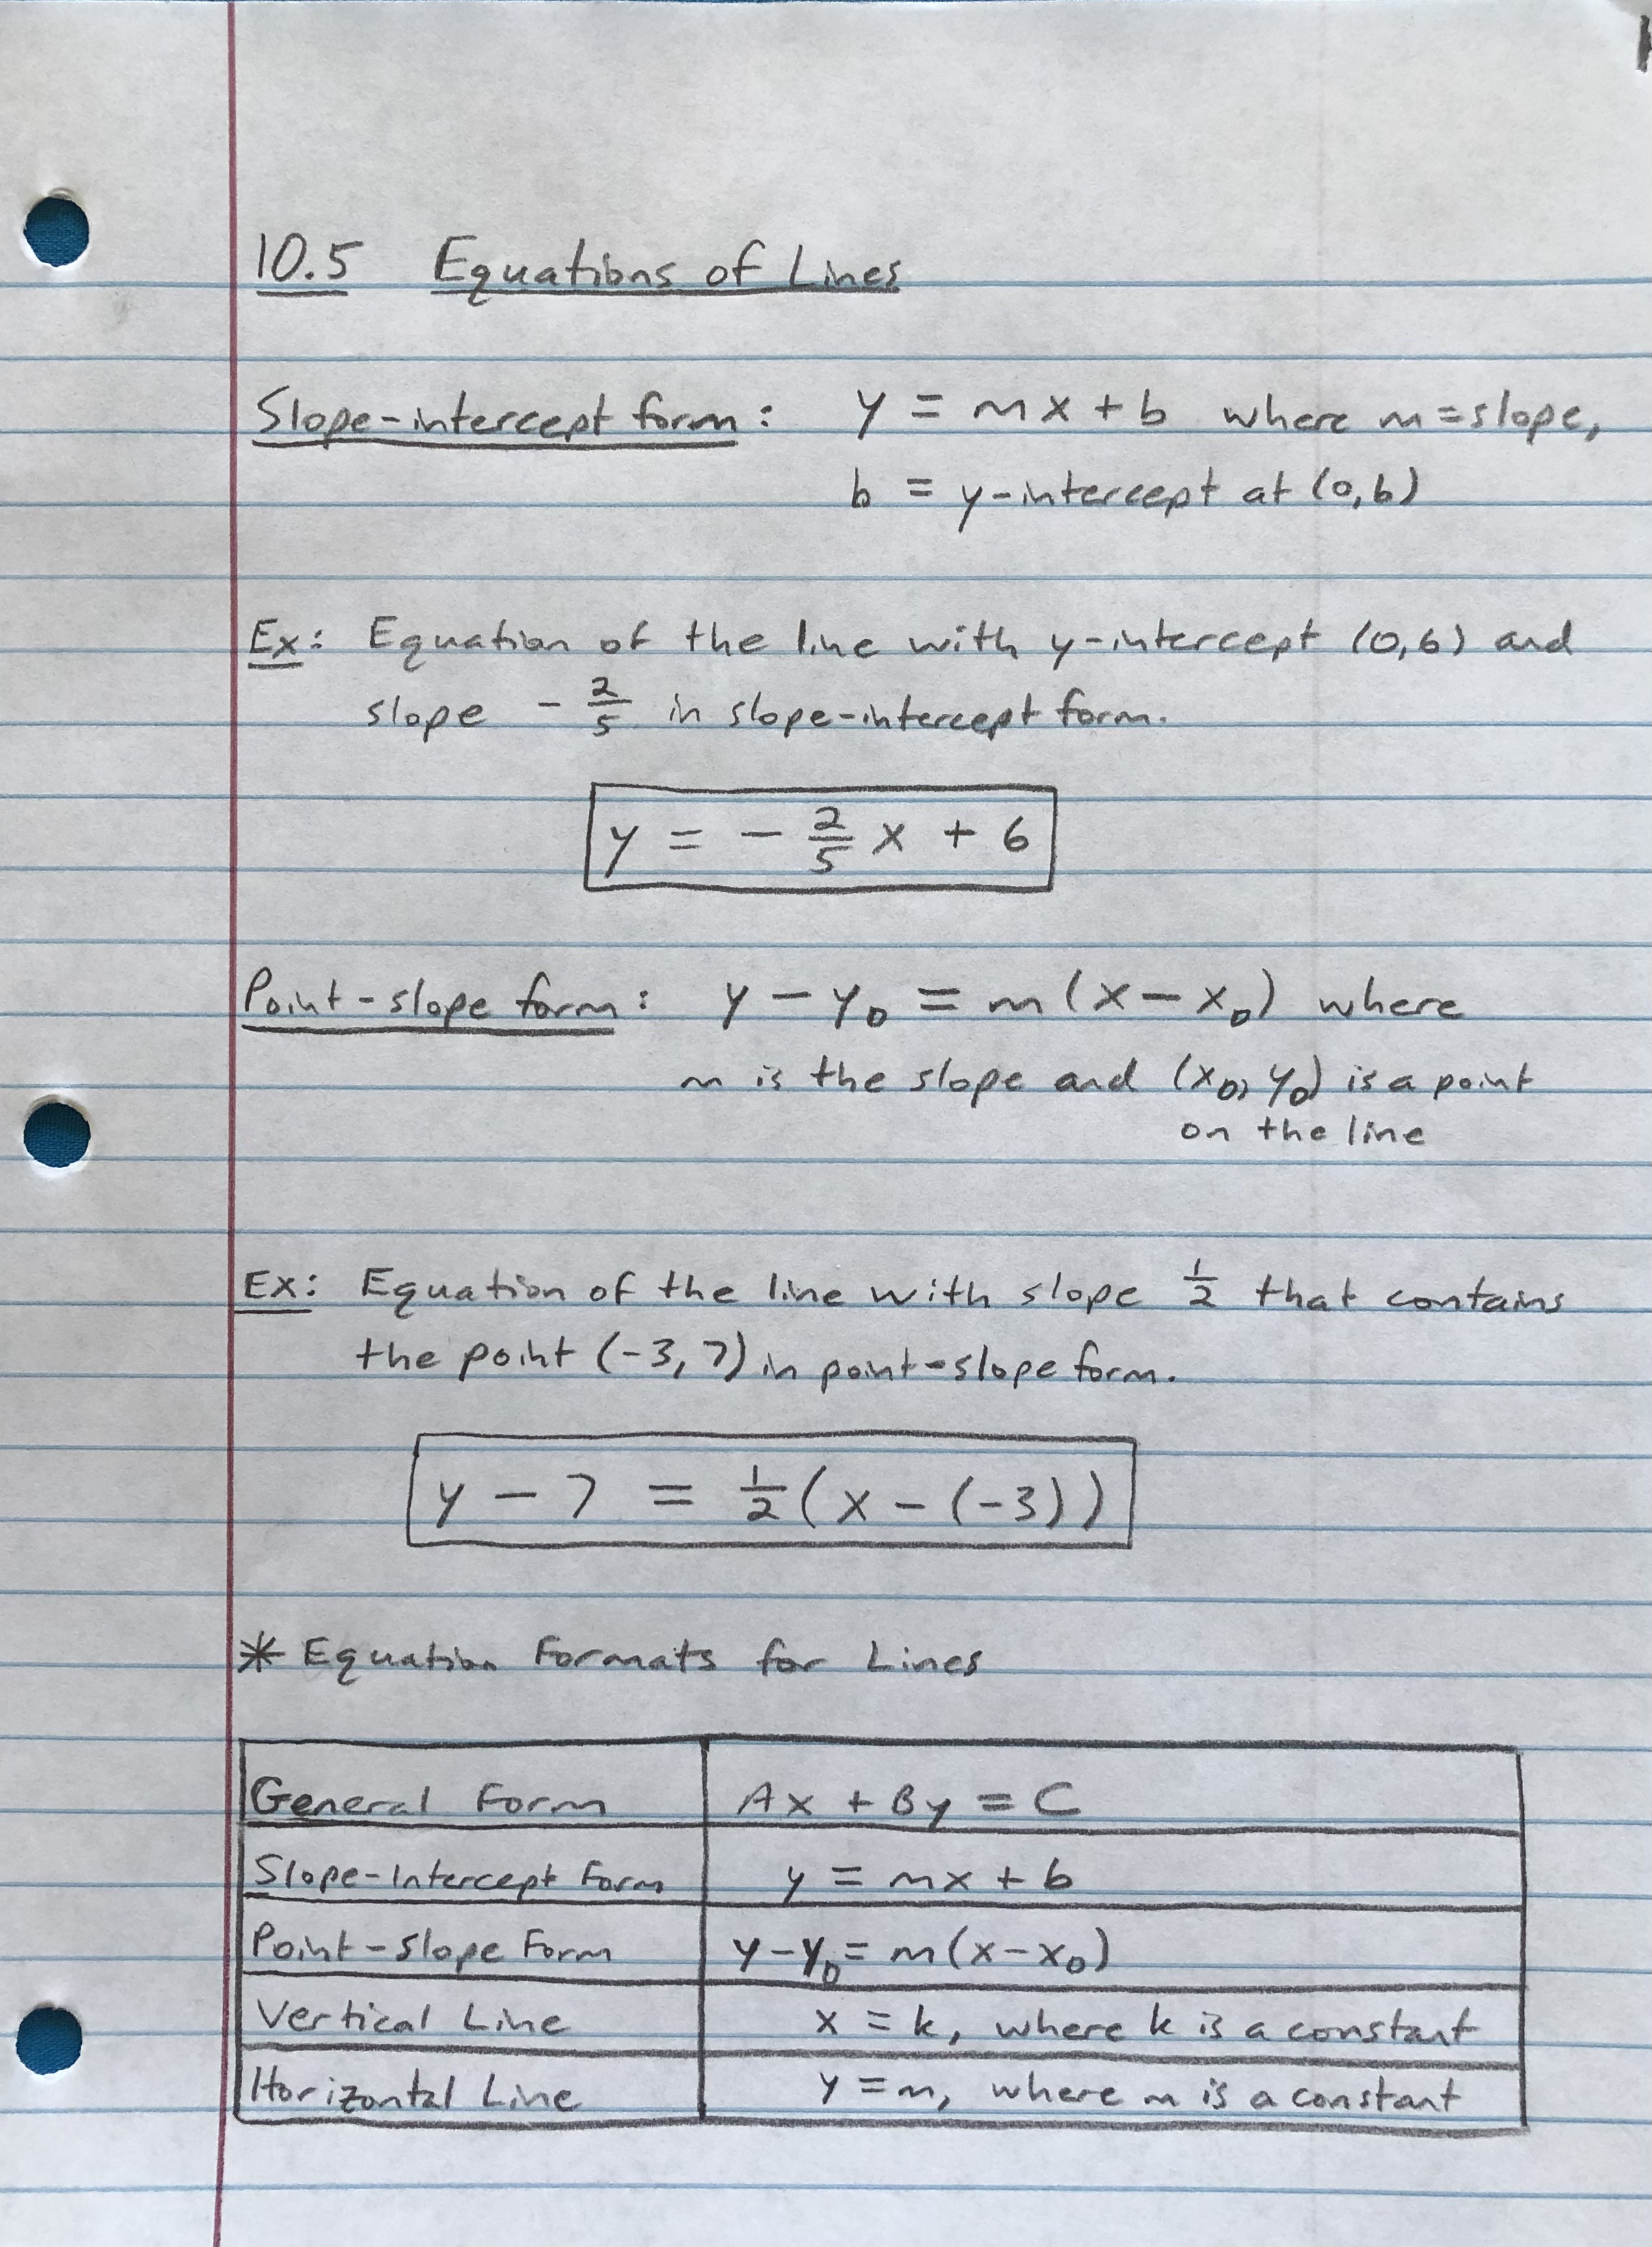 10.5 Equations of Lines
Slope-intercept form: y = mx + b where m = slope,
b = y-intercept at (0,b)
Ex: Equation of the line with y-intercept (0,6) and
slope -2/5 in slope-intercept form.
y = -2/5 x + 6
Point-slope form: y - y₀ = m(x - x₀) where
m is the slope and (x₀, y₀) is a point
on the line
Ex: Equation of the line with slope 1/2 that contains
the point (-3, 7) in point-slope form.
y - 7 = 1/2(x - (-3))
* Equation Formats for Lines
General Form Ax + By = C
Slope-Intercept Form y = mx + b
Point-Slope Form y - y₀ = m(x - x₀)
Vertical Line x = k, where k is a constant
Horizontal Line y = m, where m is a constant